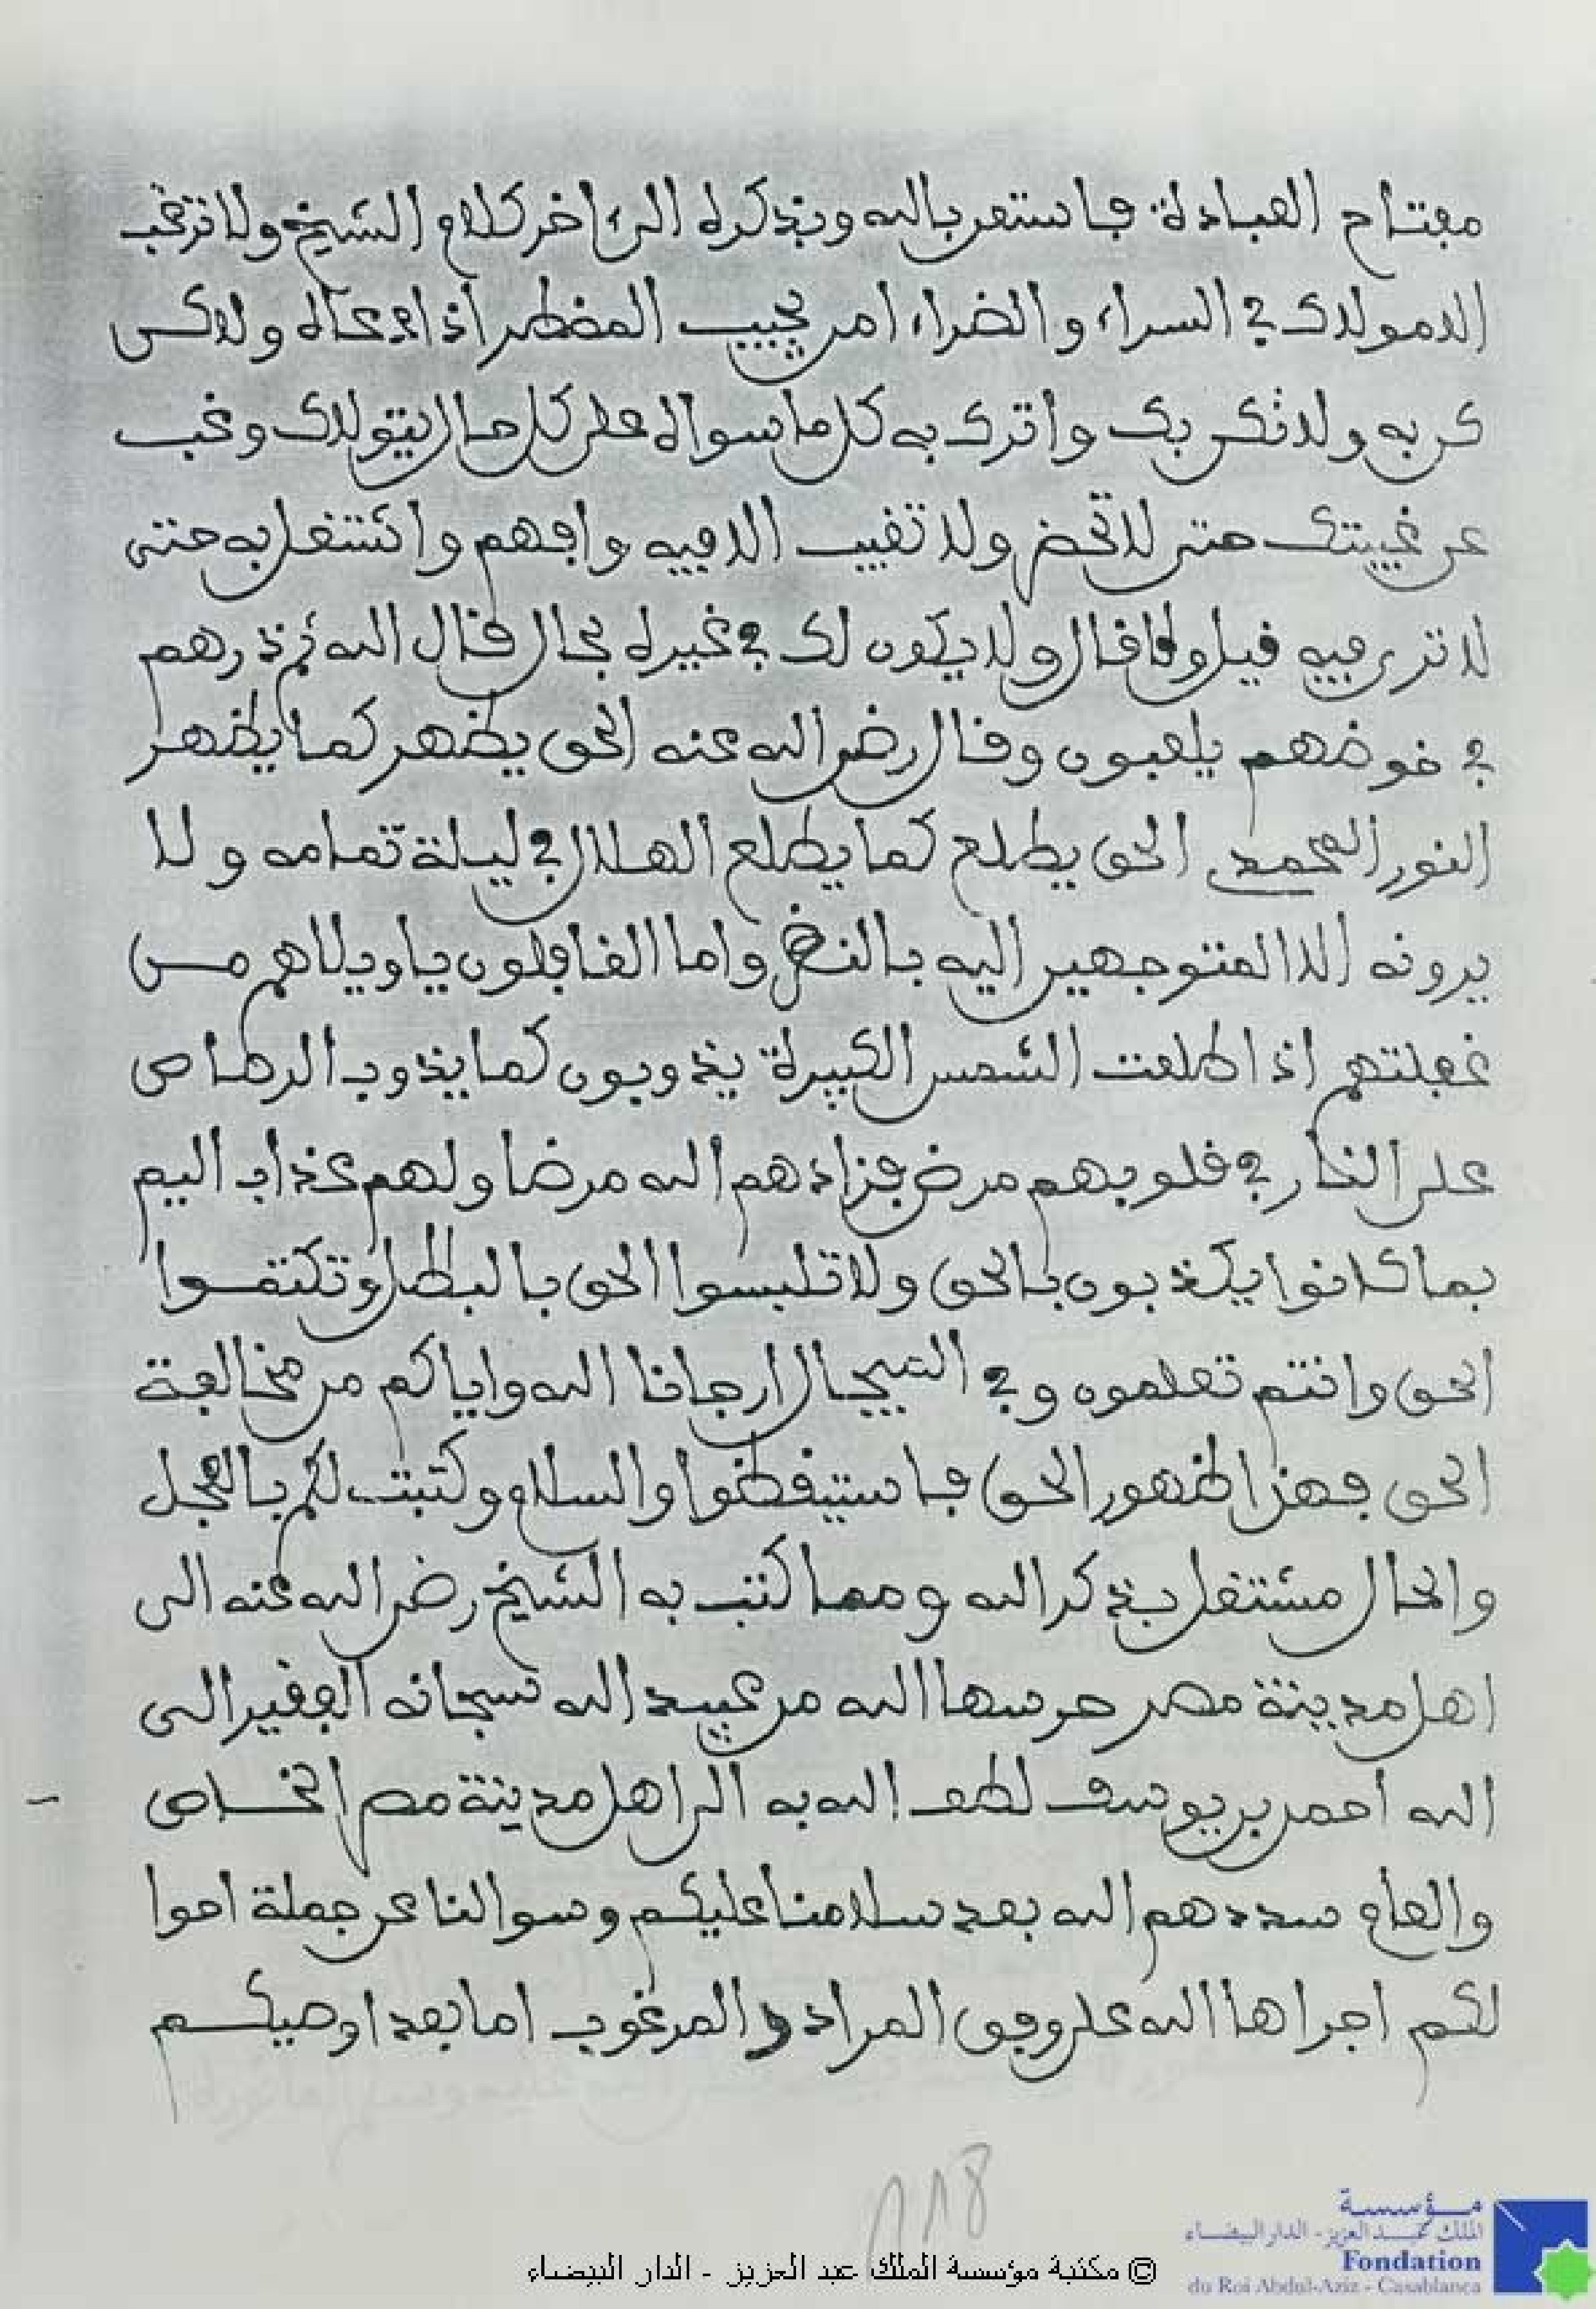 مفتاح العبادة فاستعن بالله وبذكره الى ءاخر كلام الشيخ ولا ترغب
الا مولاك في السراء والضراء امن يجيب المضطر اذا دعاه ولاكن
كن به ولا تكن بك واترك به كل ما سواه على كل حال يتولاك وغب
عن غيبتك حتى لا تحضر ولا تغيب الا فيه وافهم واشتغل به حتى
لا ترى فيه قيل ولا قال ولا يكون لك في غيره مجال قال الله ثم ذرهم
في خوضهم يلعبون وقال رضي الله عنه الحق يظهر كما يظهر
النور المحمدي الحق يطلع كما يطلع الهلال في ليلة تمامه ولا
يرونه الا المتوجهين اليه بالنظر واما الغافلون يا ويلاهم من
غفلتهم اذا طلعت الشمس الكبيرة يذوبون كما يذوب الرصاص
على النار في قلوبهم مرض فزادهم الله مرضا ولهم عذاب اليم
بما كانوا يكذبون بالحق ولا تلبسوا الحق بالبطل وتكتموا
الحق وانتم تعلمون وفي ارجانا الله واياكم من مخالفة
الحق فهذا ظهور الحق فاستيقظوا والسلام وكتبت لكم بالعجل
والحال مشتغل بذكر الله ومما كتب به الشيخ رضي الله عنه الى
اهل مدينة مصر حرسها الله من عبيد الله سبحانه الفقير الى
الله أحمد بن يوسف لطف الله به الى اهل مدينة مصر الخاص
والعام سددهم الله بعد سلامنا عليكم وسوالنا عن جملة احوا
لكم اجراها الله على وفق المراد والمرغوب اما بعد اوصيكم
118
© مكتبة مؤسسة الملك عبد العزيز - الدار البيضاء
مؤسسة
الملك عبد العزيز - الدار البيضاء
Fondation
du Roi Abdul-Aziz - Casablanca